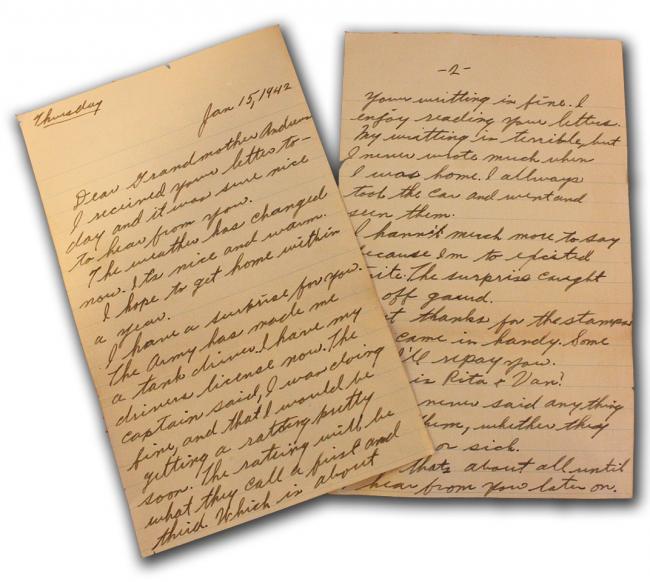 Thursday
Jan 15, 1942
Dear Grandmother Andrews
I received your letter to-
day and it was sure nice
to hear from you.
The weather has changed
now. Its nice and warm.
I hope to get home within
a year.
I have a surprise for you.
The Army has made me
a tank driver. I have my
drivers license now. The
captain said, I was doing
fine, and that I would be
getting a ratting pretty
soon. The ratting will be
what they call a first and
third. Which is about
-2-
Your writting is fine. I
enjoy reading your letters.
My writting is terrible, but
I never wrote much when
I was home. I allways
took the car and went and
seen them.
I hann't much more to say
because Im to exicted
rite. The surprise caught
off gaurd.
t thanks for the stamps
came in handy. Some
I'll repay you.
is Rita + Van?
never said anything
them, whether they
or sick.
thats about all until
hear from you later on.